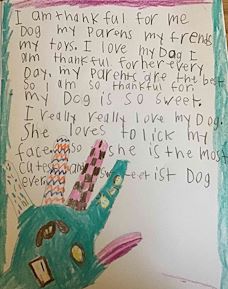 I am thankful for me
Dog my Parens my frends
my toys. I love my Dog I
am thankful for her every
Day. my Parents are the best
So I am so thankful for
my Dog is so sweet.
I really really love my Dog.
She loves to lick my
face. so she is the most
cutest and sweetist Dog
ever